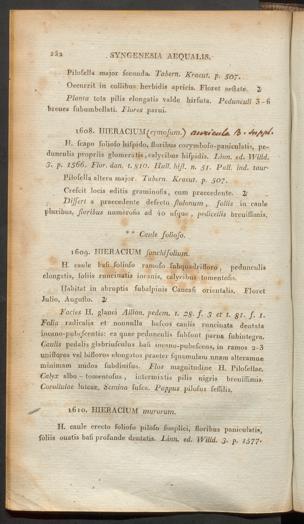 282
SYNGENESIA AEQUALIS.
Pilosella major secunda. Tabern. Kraeut. p. 507.
Occurrit in collibus herbidis apricis. Floret aestate. ♃
Planta tota pilis elongatis valde hirsuta. Pedunculi 3-6
breues subumbellati. Flores parui.
1608. HIERACIUM (cymosum.) auricula B. suppl.
H. scapo folioso hispido, floribus corymboso-paniculatis, pe-
dunculis propriis glomeratis, calycibus hispidis. Linn. ed. Willd.
3. p. 1566. Flor. dan. t. 810. Hall. hist. n. 51. Pall. ind. taur.
Pilosella altera major. Tabern. Kraeut. p. 507.
Crescit locis editis graminosis, cum praecedente. ♃
Differt a praecedente defectu stolonum, foliis in caule
pluribus, floribus numerosis ad 40 usque, pedicellis breuissimis.
** Caule folioso.
1609. HIERACIUM sonchifolium.
H. caule basi folioso ramoso subquadrifloro, pedunculis
elongatis, foliis runcinatis incanis, calycibus tomentosis.
Habitat in abruptis subalpinis Caucasi orientalis. Floret
Julio, Augusto. ♃
Facies H. glauci Allion. pedem. t. 28. f. 3 et t. 81. f. 1.
Folia radicalia et nonnulla baseos caulis runcinata dentata
incano-pubescentia: ea quae pedunculis subsunt parua subintegra.
Caulis pedalis glabriusculus basi incano-pubescens, in ramos 2-3
unifloros vel bifloros elongatos praeter squamulam unam alteramue
minimam nudos subdiuisus. Flos magnitudine H. Pilosellae.
Calyx albo-tomentosus, intermixtis pilis nigris breuissimis.
Corollulae luteae. Semina fusca. Pappus pilosus sessilis.
1610. HIERACIUM murorum.
H. caule erecto folioso piloso simplici, floribus paniculatis,
foliis ouatis basi profunde dentatis. Linn. ed. Willd. 3. p. 1577.